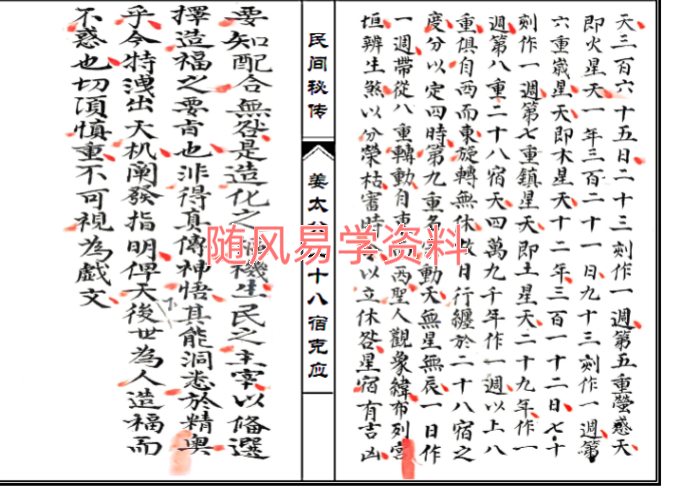 天三百六十五日二十三刻作一週第五重螢惑天
即火星天一年三百二十一日九十三刻作一週第
六重嵗星天即木星天十二年三百一十二日七十
刻作一週第七重鎮星天即土星天二十九年作一
週第八重二十八宿天四萬九千年作一週以上八
重俱自西而東旋轉無休故日行纏於二十八宿之
度分以定四時第九重名動天無星無辰一日作
一週帶從八重轉動自東而西聖人觀象緯布列宮
垣辨生煞以分榮枯審時令以立休咎星宿有吉凶
民间秘传
姜太公二十八宿克应
要知配合無咎是造化之樞機生民之主宰以俻選
擇造福之要旨也非得真傳神悟其能洞悉於精奥
乎今特洩出天机阐發指明俾天下後世為人造福而
不惑也切須慎重不可視為戲文
随风易学资料